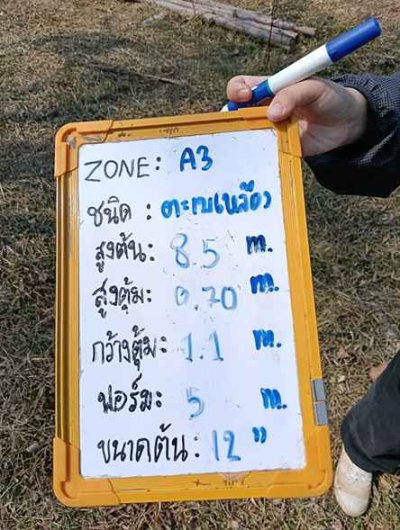 ZONE: A3
ชนิด : ตะแบกเหลือง
สูงต้น: 8.5 m.
สูงตุ้ม: 0.70 m.
กว้างตุ้ม: 1.1 m.
ฟอร์ม: 5 m.
ขนาดต้น: 12"